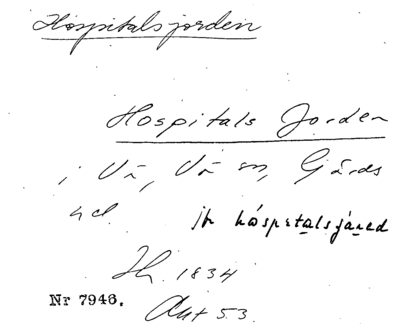 Hospitalsjorden
Hospitals Jorden
i Vä, Vä sn, Gärds
hd. jfr hospitalsjåred
Ih. 1834
Nr 7946. Akt 53.